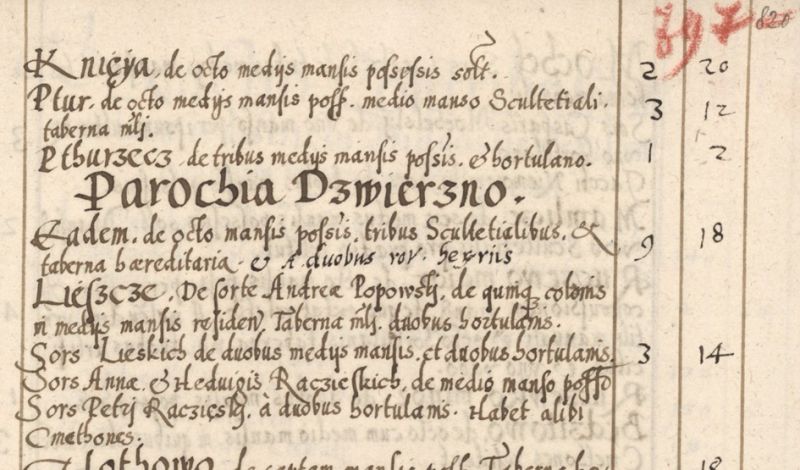 397 820
Knięya. de octo medijs mansis possessis solt. 2 20
Ptur. de octo medijs mansis poss. medio manso Scultetiali. 3 12
taberna mlj.
Pthurzecz. de tribus medijs mansis possis. & hortulano. 1 2
Parochia Dzwierzno.
Eadem. de octo mansis possis. tribus Scultetialibus. & 9 18
taberna hæreditaria. & A duobus rov.
Lieszcze. De sorte Andreæ Popowskj. de quinq colonis
in medijs mansis residen. Taberna mlj. duobus hortulanis.
Sors Lieskich de duobus medijs mansis. et duobus hortulanis. 3 14
Sors Annæ. & Hedvigis Raczieskich. de medio manso posso
Sors Petrj Raczięskj. à duobus hortulanis. Habet alibi
Cmethones.
de septem mansis poss. Taberna 18